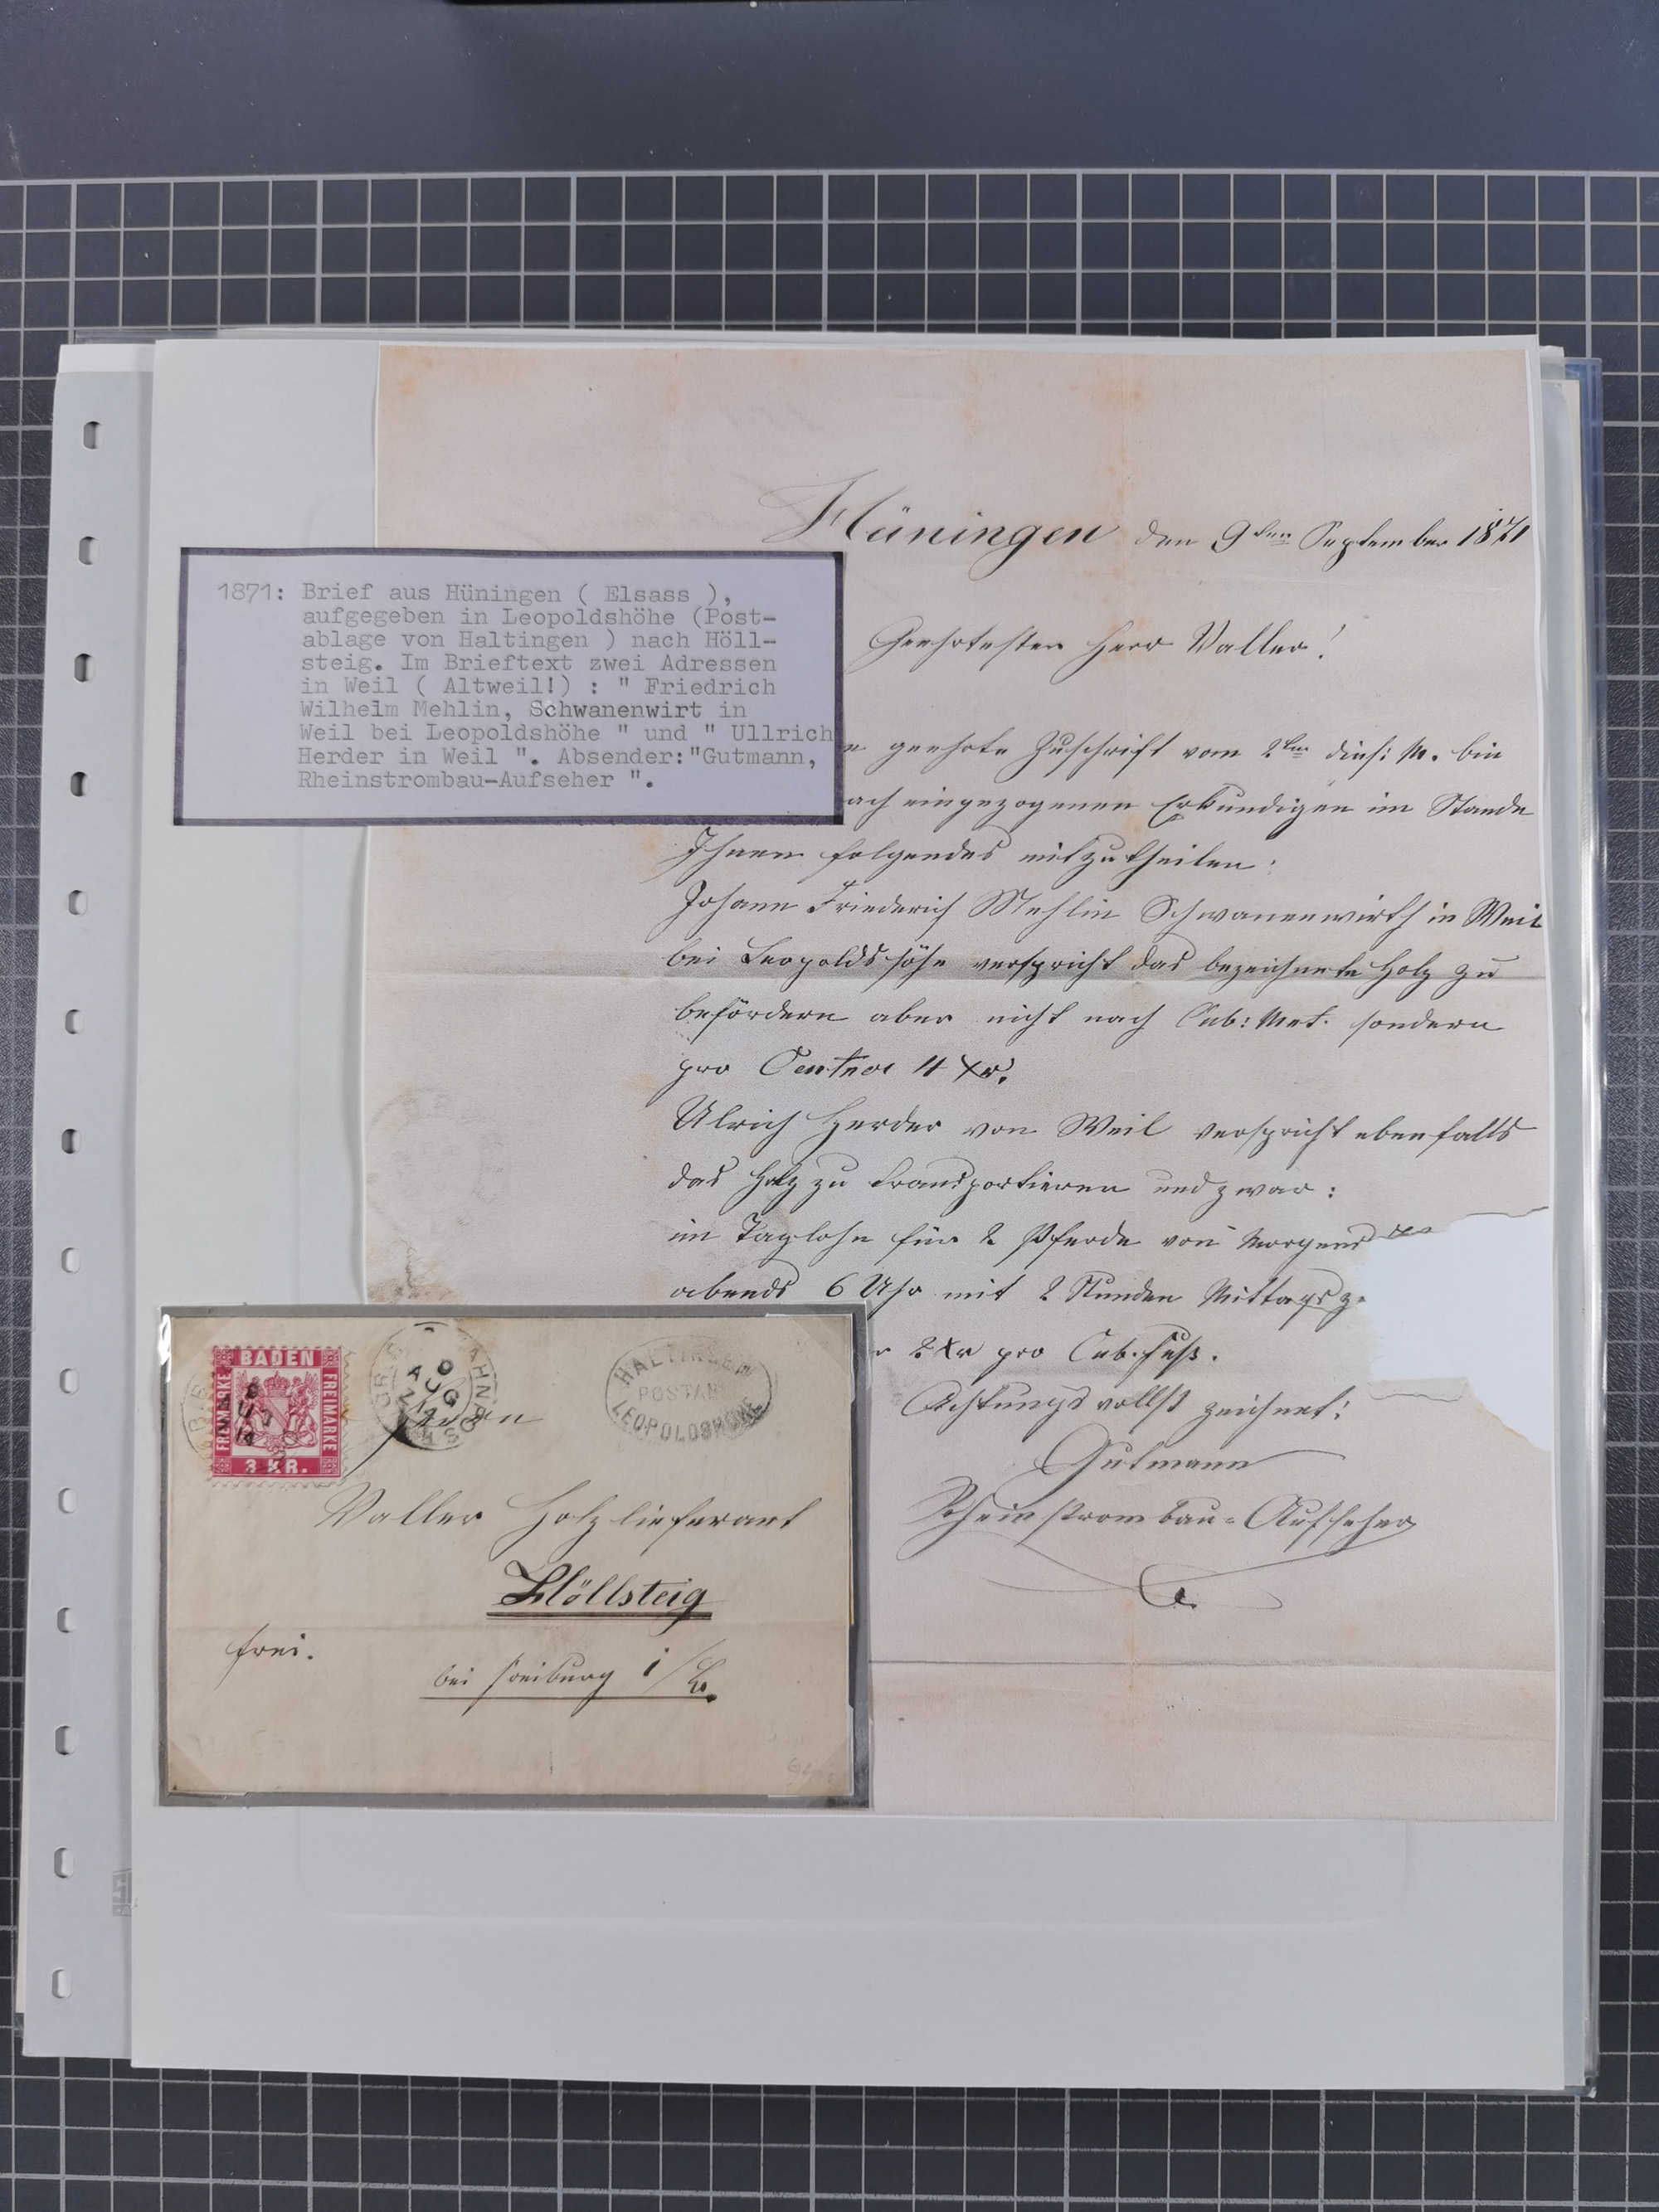 Hüningen den 9ten September 1871
1871: Brief aus Hüningen ( Elsass ),
aufgegeben in Leopoldshöhe (Post-
ablage von Haltingen ) nach Höll-
steig. Im Brieftext zwei Adressen
in Weil ( Altweil!) : " Friedrich
Wilhelm Mehlin, Schwanenwirt in
Weil bei Leopoldshöhe " und " Ullrich
Herder in Weil ". Absender:"Gutmann,
Rheinstrombau-Aufseher ".
Geehrtester Herr Valler!
geehrte Zuschrift vom 2ten dies: M. bin
ach eingezogenen Erkundigen im Stande
Ihnen folgendes mitzutheilen:
Johann Friederich Mehlin Schwanenwirth in Weil
bei Leopoldshöhe verspricht das bezeichnete Holz zu
befördern aber nicht nach Cub: Met. sondern
pro Centner 4 Xr.
Ulrich Herder von Weil verspricht ebenfalls
das Holz zu transportieren und zwar:
im Taglohn für 2 Pferde von Morgens
abends 6 Uhr mit 2 Stunden Mittags
2 Xr pro Cub. fuß.
Achtungsvollst zeichnet:
Gutmann
Rheinstrombau-Aufseher
BADEN
FREIMARKE
FREIMARKE
3 KR.
HALTINGEN
POSTAB
LEOPOLDSHÖHE
Herrn
Valler Holzlieferant
Höllsteig
frei.
bei Freiburg i/Br.